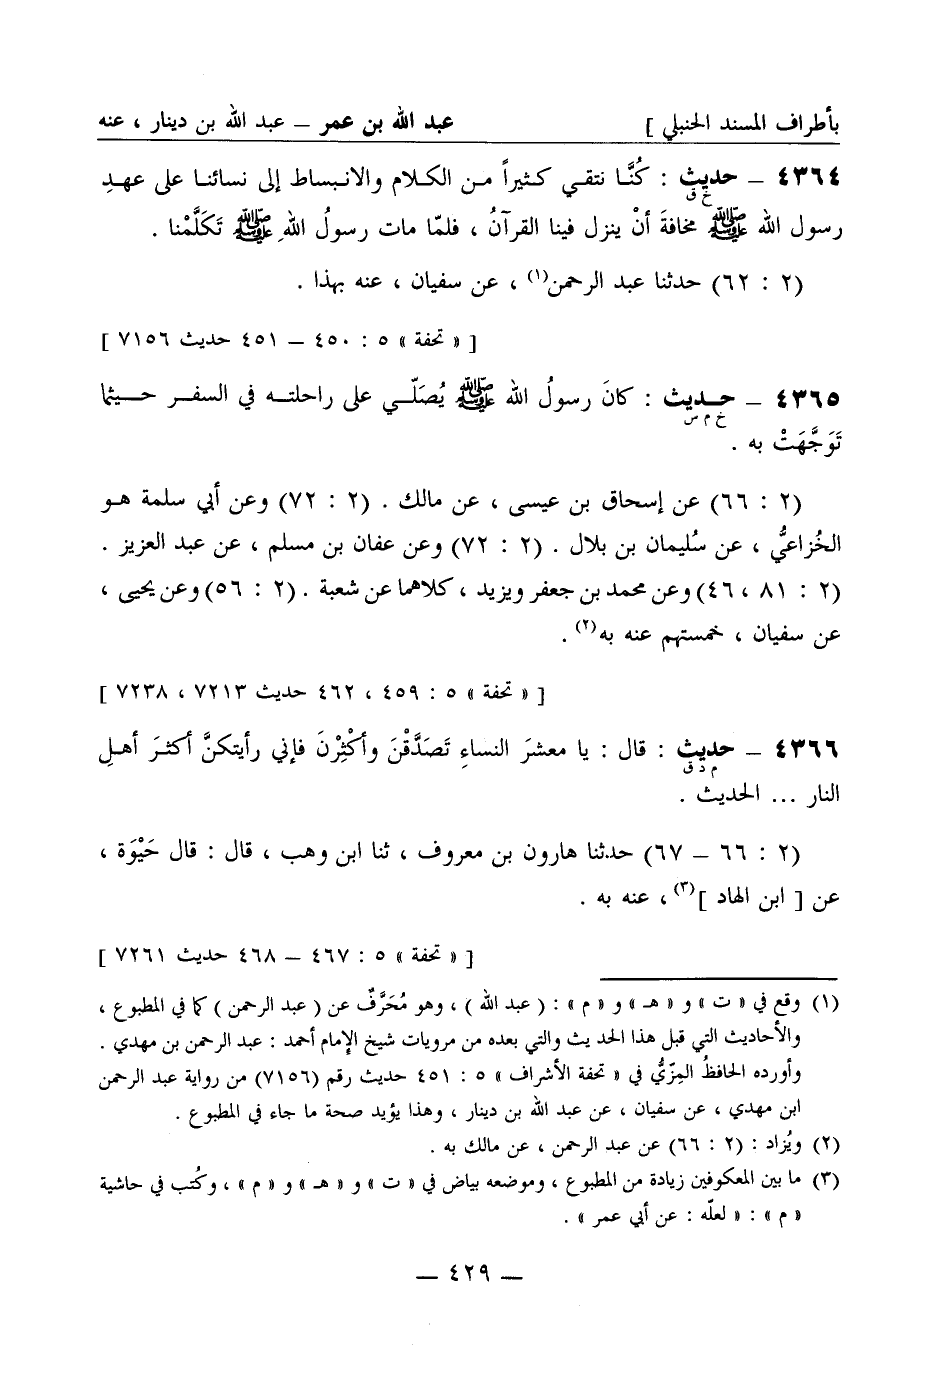 بأطراف المسند الحنبلي ] عبد الله بن عمر – عبد الله بن دينار ، عنه
٤٣٦٤ – حديث : كُنَّا نتقي كثيراً من الكلام والانبساط إلى نسائنا على عهدِ
خ ق
رسول الله ﷺ مخافةَ أنْ ينزل فينا القرآنُ ، فلمّا مات رسولُ اللهِ ﷺ تَكَلَّمْنا .
(٢ : ٦٢) حدثنا عبد الرحمن(١) ، عن سفيان ، عنه بهذا .
[ « تحفة » ٥ : ٤٥٠ – ٤٥١ حديث ٧١٥٦ ]
٤٣٦٥ – حديث : كانَ رسولُ الله ﷺ يُصَلّي على راحلته في السفر حيثما
خ م س
تَوَجَّهَتْ به .
(٢ : ٦٦) عن إسحاق بن عيسى ، عن مالك . (٢ : ٧٢) وعن أبي سلمة هو
الخُزاعيُّ ، عن سُليمان بن بلال . (٢ : ٧٢) وعن عفان بن مسلم ، عن عبد العزيز .
(٢ : ٨١ ، ٤٦) وعن محمد بن جعفر ويزيد ، كلاهما عن شعبة . (٢ : ٥٦) وعن يحيى ،
عن سفيان ، خمستهم عنه به(٢) .
[ « تحفة » ٥ : ٤٥٩ ، ٤٦٢ حديث ٧٢١٣ ، ٧٢٣٨ ]
٤٣٦٦ – حديث : قال : يا معشرَ النساءِ تَصَدَّقْنَ وأكْثِرْنَ فإني رأيتكنَّ أكثرَ أهلِ
م د ق
النار ... الحديث .
(٢ : ٦٦ – ٦٧) حدثنا هارون بن معروف ، ثنا ابن وهب ، قال : قال حَيْوَة ،
عن [ ابن الهاد ](٣) ، عنه به .
[ « تحفة » ٥ : ٤٦٧ – ٤٦٨ حديث ٧٢٦١ ]
(١) وقع في « ت » و « هـ » و « م » : ( عبد الله ) ، وهو مُحَرَّفٌ عن ( عبد الرحمن ) كما في المطبوع ،
والأحاديث التي قبل هذا الحديث والتي بعده من مرويات شيخ الإمام أحمد : عبد الرحمن بن مهدي .
وأورده الحافظُ المِزّيُّ في « تحفة الأشراف » ٥ : ٤٥١ حديث رقم (٧١٥٦) من رواية عبد الرحمن
ابن مهدي ، عن سفيان ، عن عبد الله بن دينار ، وهذا يؤيد صحة ما جاء في المطبوع .
(٢) ويُزاد : (٢ : ٦٦) عن عبد الرحمن ، عن مالك به .
(٣) ما بين المعكوفين زيادة من المطبوع ، وموضعه بياض في « ت » و « هـ » و « م » ، وكُتب في حاشية
« م » : « لعلّه : عن أبي عمر » .
– ٤٢٩ –